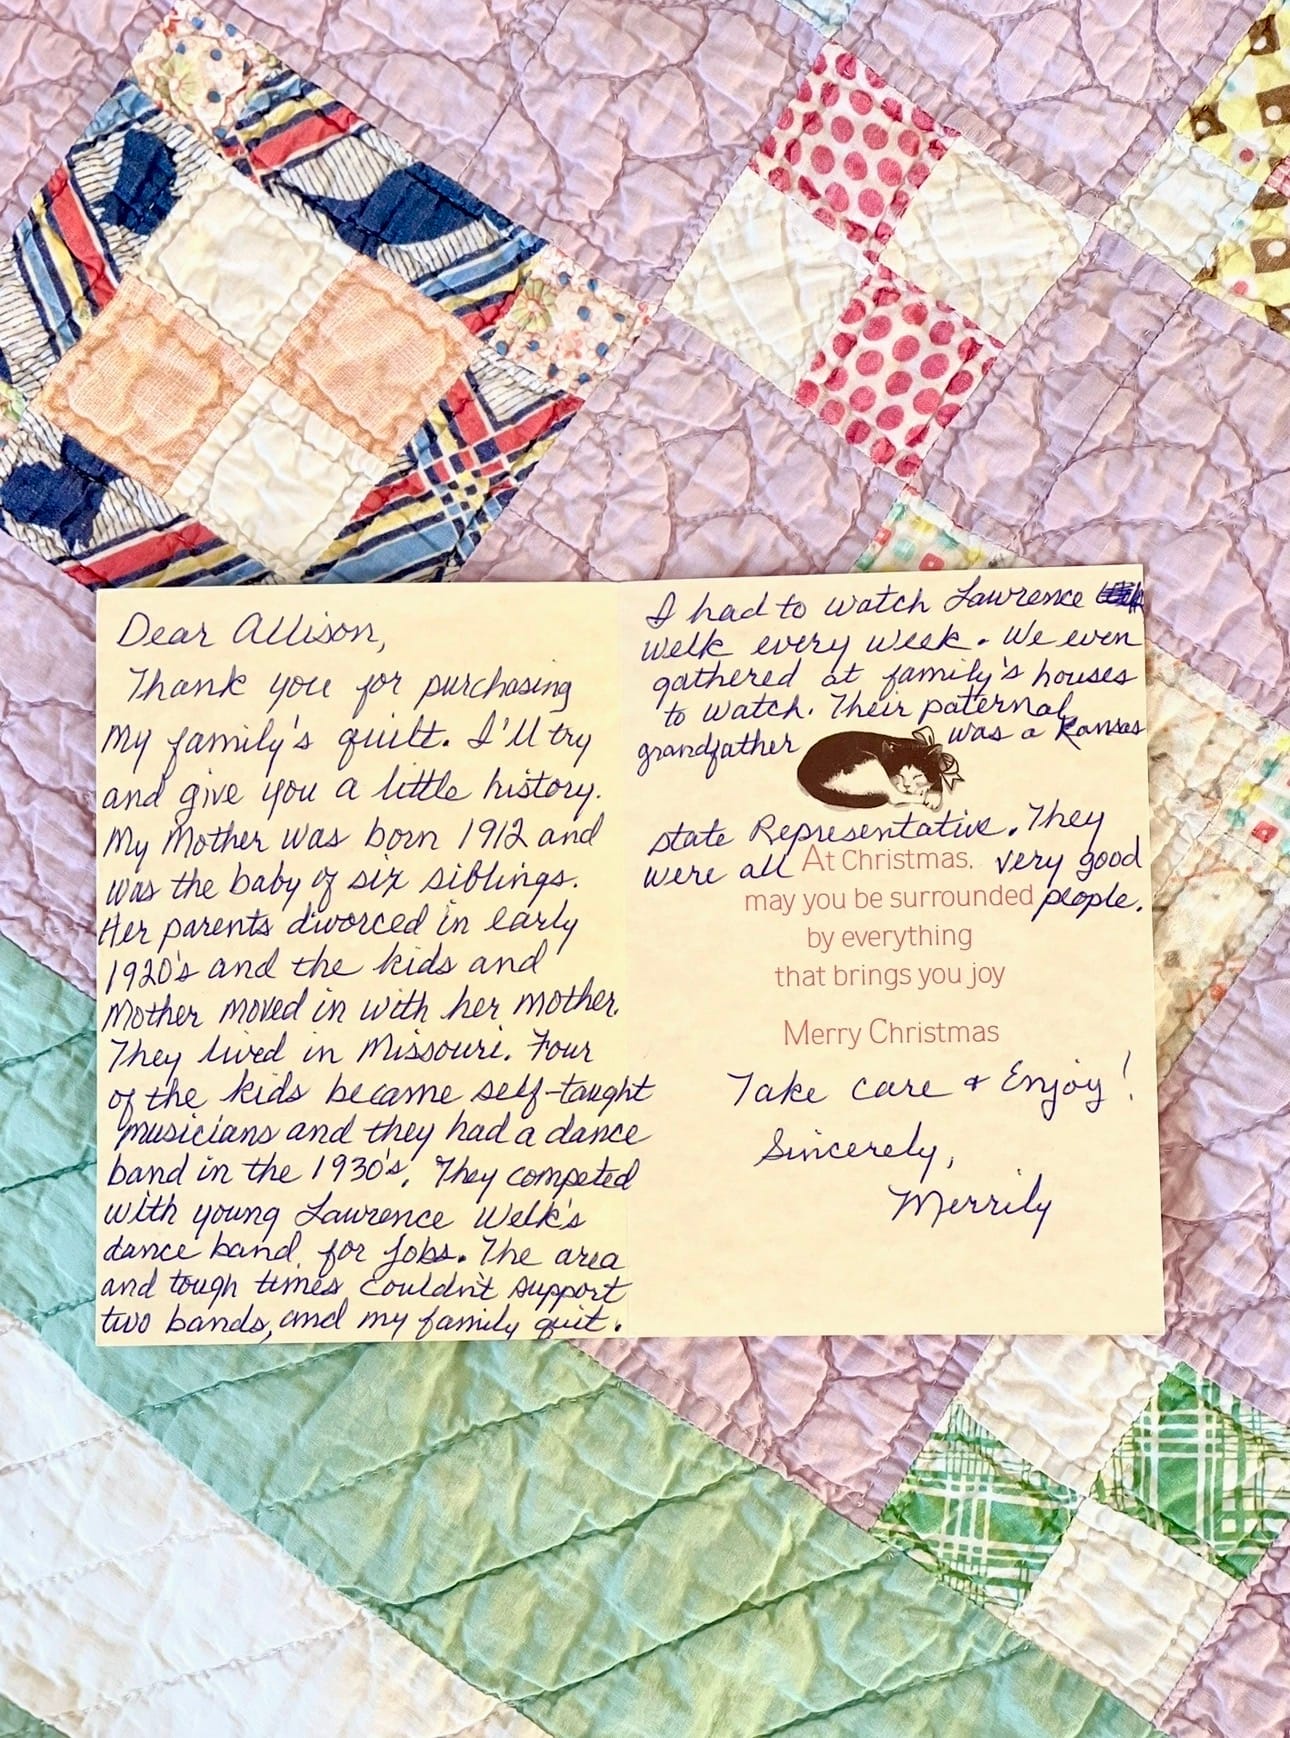 Dear Allison,
Thank you for purchasing
my family's quilt. I'll try
and give you a little history.
My Mother was born 1912 and
was the baby of six siblings.
Her parents divorced in early
1920's and the kids and
Mother moved in with her mother.
They lived in Missouri. Four
of the kids became self-taught
musicians and they had a dance
band in the 1930's. They competed
with young Lawrence Welk's
dance band for jobs. The area
and tough times couldn't support
two bands, and my family quit.
I had to watch Lawrence
Welk every week. We even
gathered at family's houses
to watch. Their paternal
grandfather was a Kansas
state Representative. They
were all very good
people.
At Christmas,
may you be surrounded
by everything
that brings you joy
Merry Christmas
Take care & Enjoy!
Sincerely,
Merrily